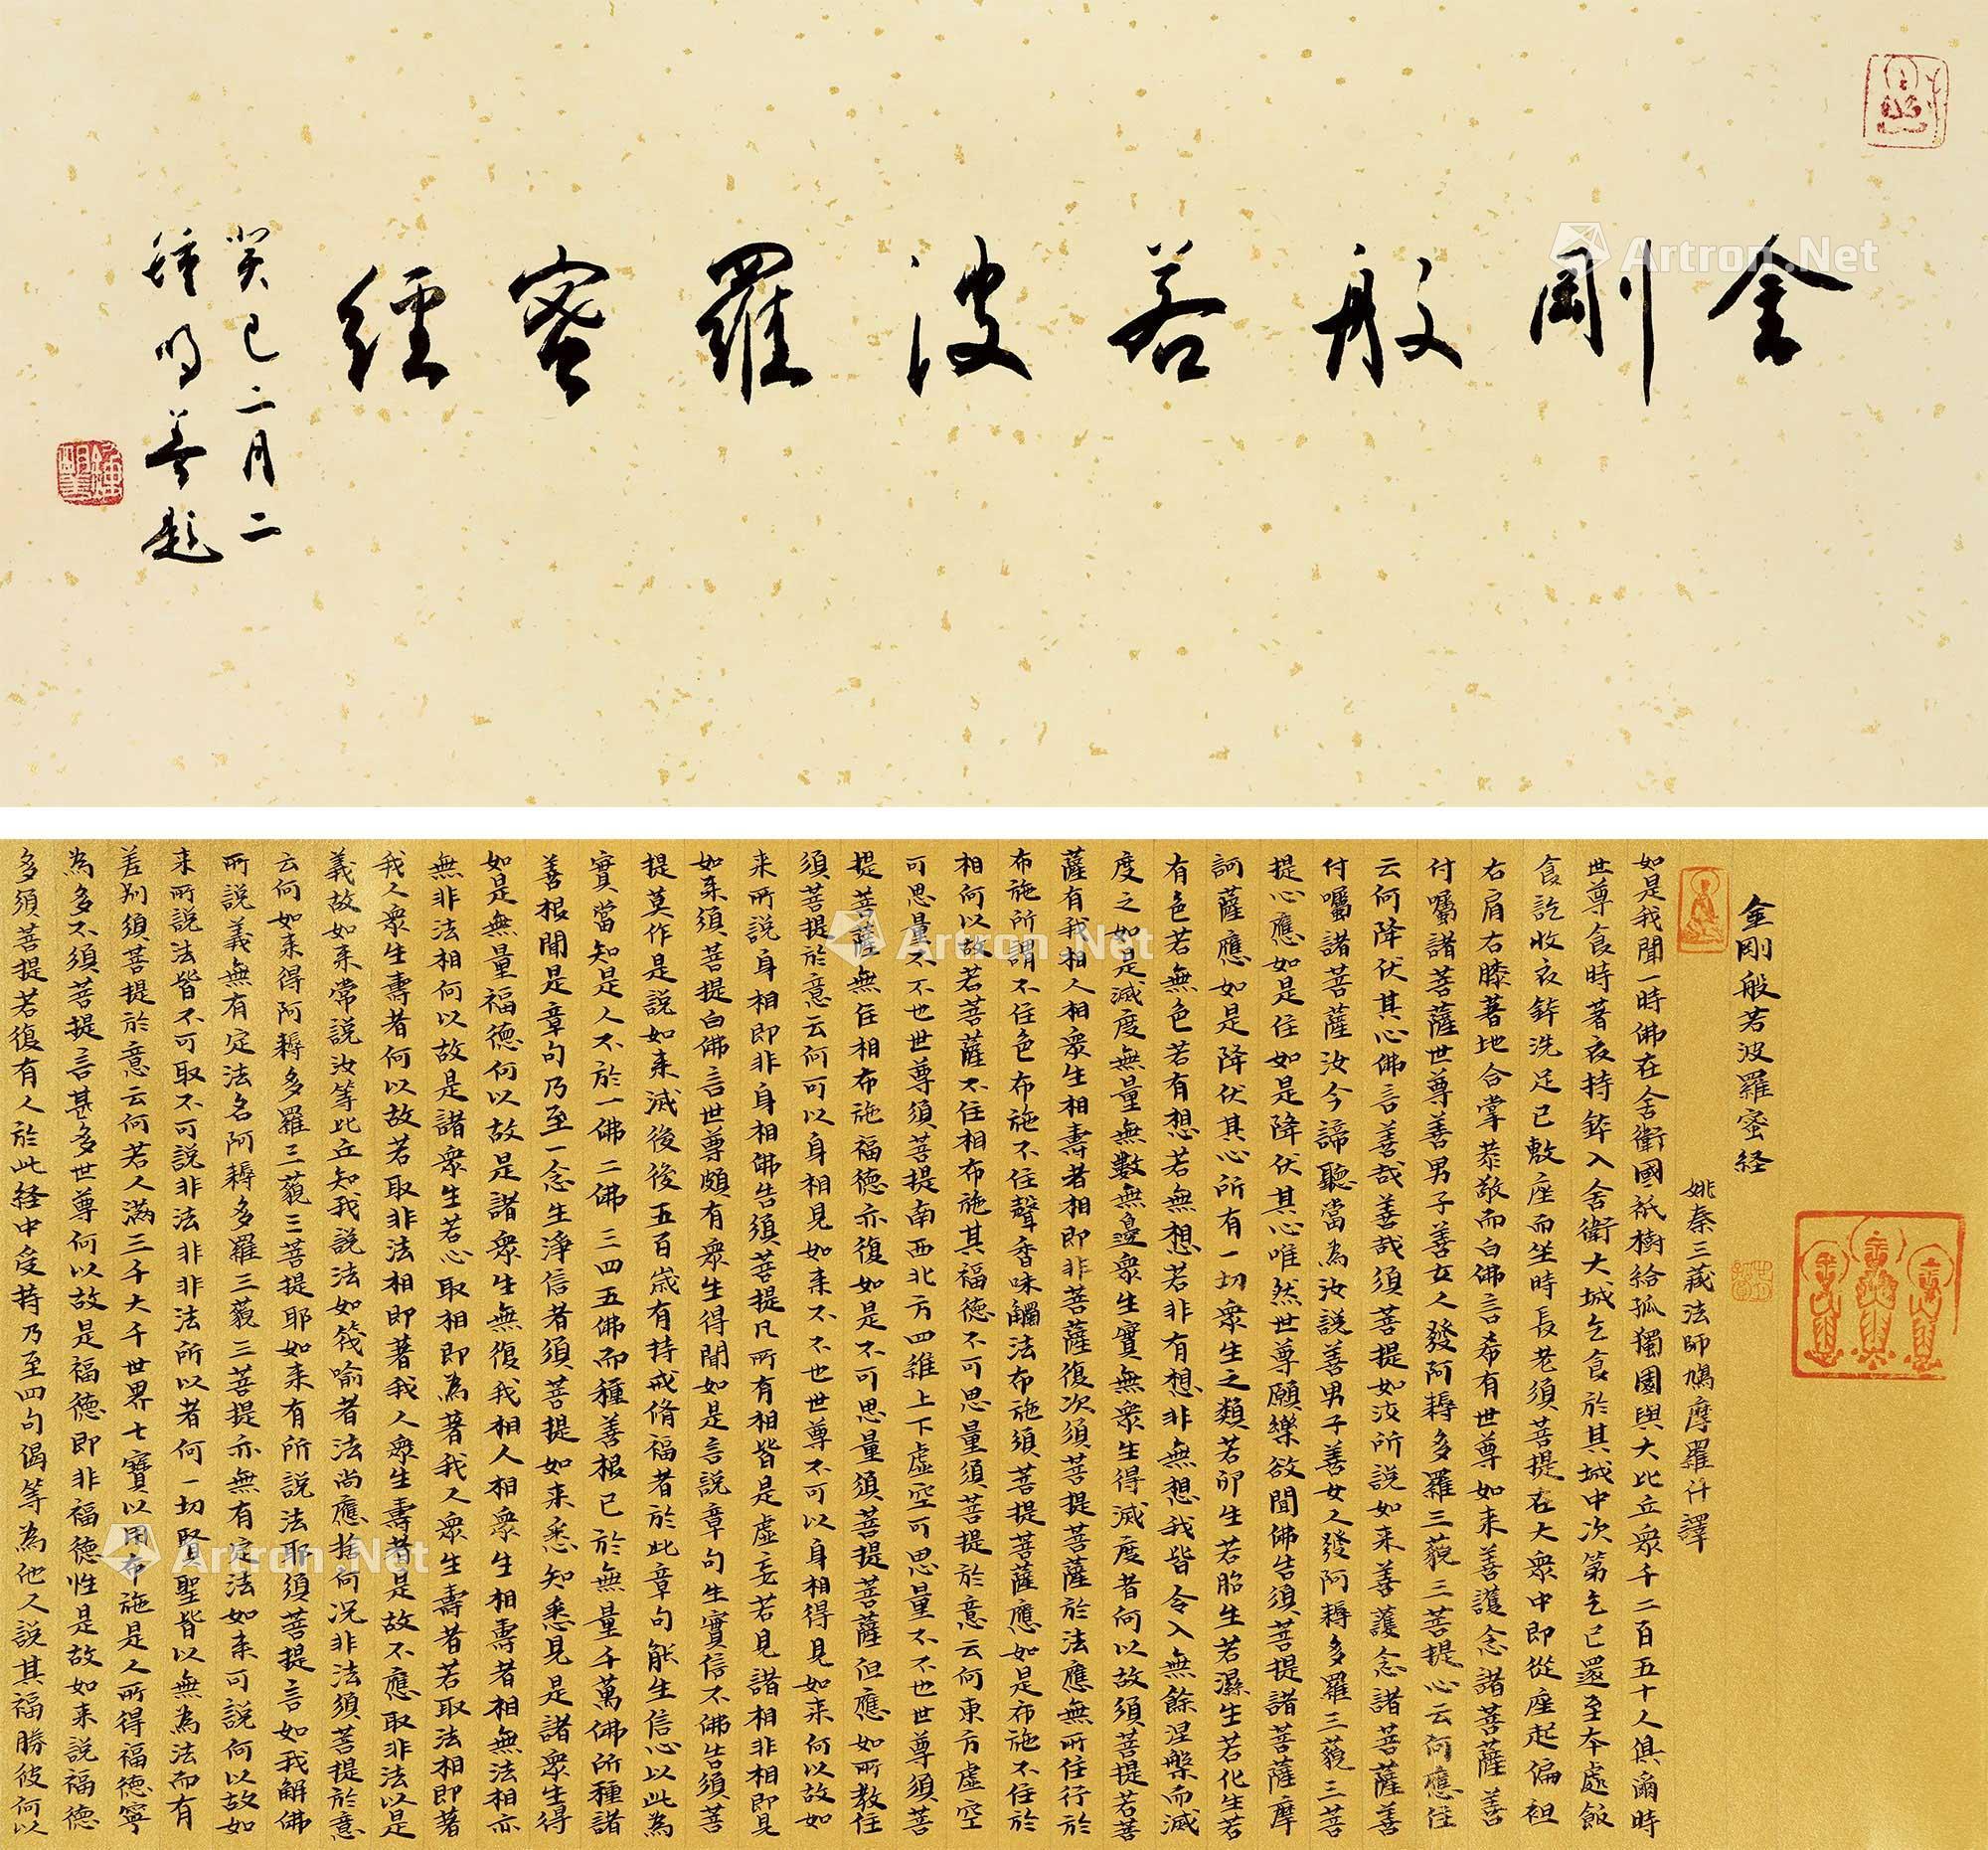 金剛般若波羅蜜經
癸巳二月二
鍾明善題
金剛般若波羅蜜経
姚秦三藏法師鳩摩羅什譯
如是我聞一時佛在舍衛國祇樹給孤獨園與大比丘衆千二百五十人俱爾時
世尊食時著衣持鉢入舍衛大城乞食於其城中次第乞已還至本處飯
食訖收衣鉢洗足已敷座而坐時長老須菩提在大衆中即從座起偏袒
右肩右膝著地合掌恭敬而白佛言希有世尊如来善護念諸菩薩善
付囑諸菩薩世尊善男子善女人發阿耨多羅三藐三菩提心云何應住
云何降伏其心佛言善哉善哉須菩提如汝所説如来善護念諸菩薩善
付囑諸菩薩汝今諦聽當為汝説善男子善女人發阿耨多羅三藐三菩
提心應如是住如是降伏其心唯然世尊願樂欲聞佛告須菩提諸菩薩摩
訶薩應如是降伏其心所有一切衆生之類若卵生若胎生若濕生若化生若
有色若無色若有想若無想若非有想非無想我皆令入無餘涅槃而滅
度之如是滅度無量無數無邊衆生實無衆生得滅度者何以故須菩提若菩
薩有我相人相衆生相壽者相即非菩薩復次須菩提菩薩於法應無所住行於
布施所謂不住色布施不住聲香味觸法布施須菩提菩薩應如是布施不住於
相何以故若菩薩不住相布施其福德不可思量須菩提於意云何東方虛空
可思量不不也世尊須菩提南西北方四維上下虛空可思量不不也世尊須菩
提菩薩無住相布施福德亦復如是不可思量須菩提菩薩但應如所教住
須菩提於意云何可以身相見如来不不也世尊不可以身相得見如来何以故如
来所説身相即非身相佛告須菩提凡所有相皆是虛妄若見諸相非相即見
如来須菩提白佛言世尊頗有衆生得聞如是言説章句生實信不佛告須菩
提莫作是説如来滅後後五百歲有持戒脩福者於此章句能生信心以此為
實當知是人不於一佛二佛三四五佛而種善根已於無量千萬佛所種諸
善根聞是章句乃至一念生淨信者須菩提如来悉知悉見是諸衆生得
如是無量福德何以故是諸衆生無復我相人相衆生相壽者相無法相亦
無非法相何以故是諸衆生若心取相即為著我人衆生壽者若取法相即著
我人衆生壽者何以故若取非法相即著我人衆生壽者是故不應取非法以是
義故如来常説汝等比丘知我説法如筏喻者法尚應捨何況非法須菩提於意
云何如来得阿耨多羅三藐三菩提耶如来有所説法耶須菩提言如我解佛
所説義無有定法名阿耨多羅三藐三菩提亦無有定法如来可説何以故如
来所説法皆不可取不可説非法非非法所以者何一切賢聖皆以無為法而有
差別須菩提於意云何若人滿三千大千世界七寶以用布施是人所得福德寧
為多不須菩提言甚多世尊何以故是福德即非福德性是故如来説福德
多須菩提若復有人於此経中受持乃至四句偈等為他人説其福勝彼何以
Artron.Net
Artron.Net
Artron.Net
Artron.Net